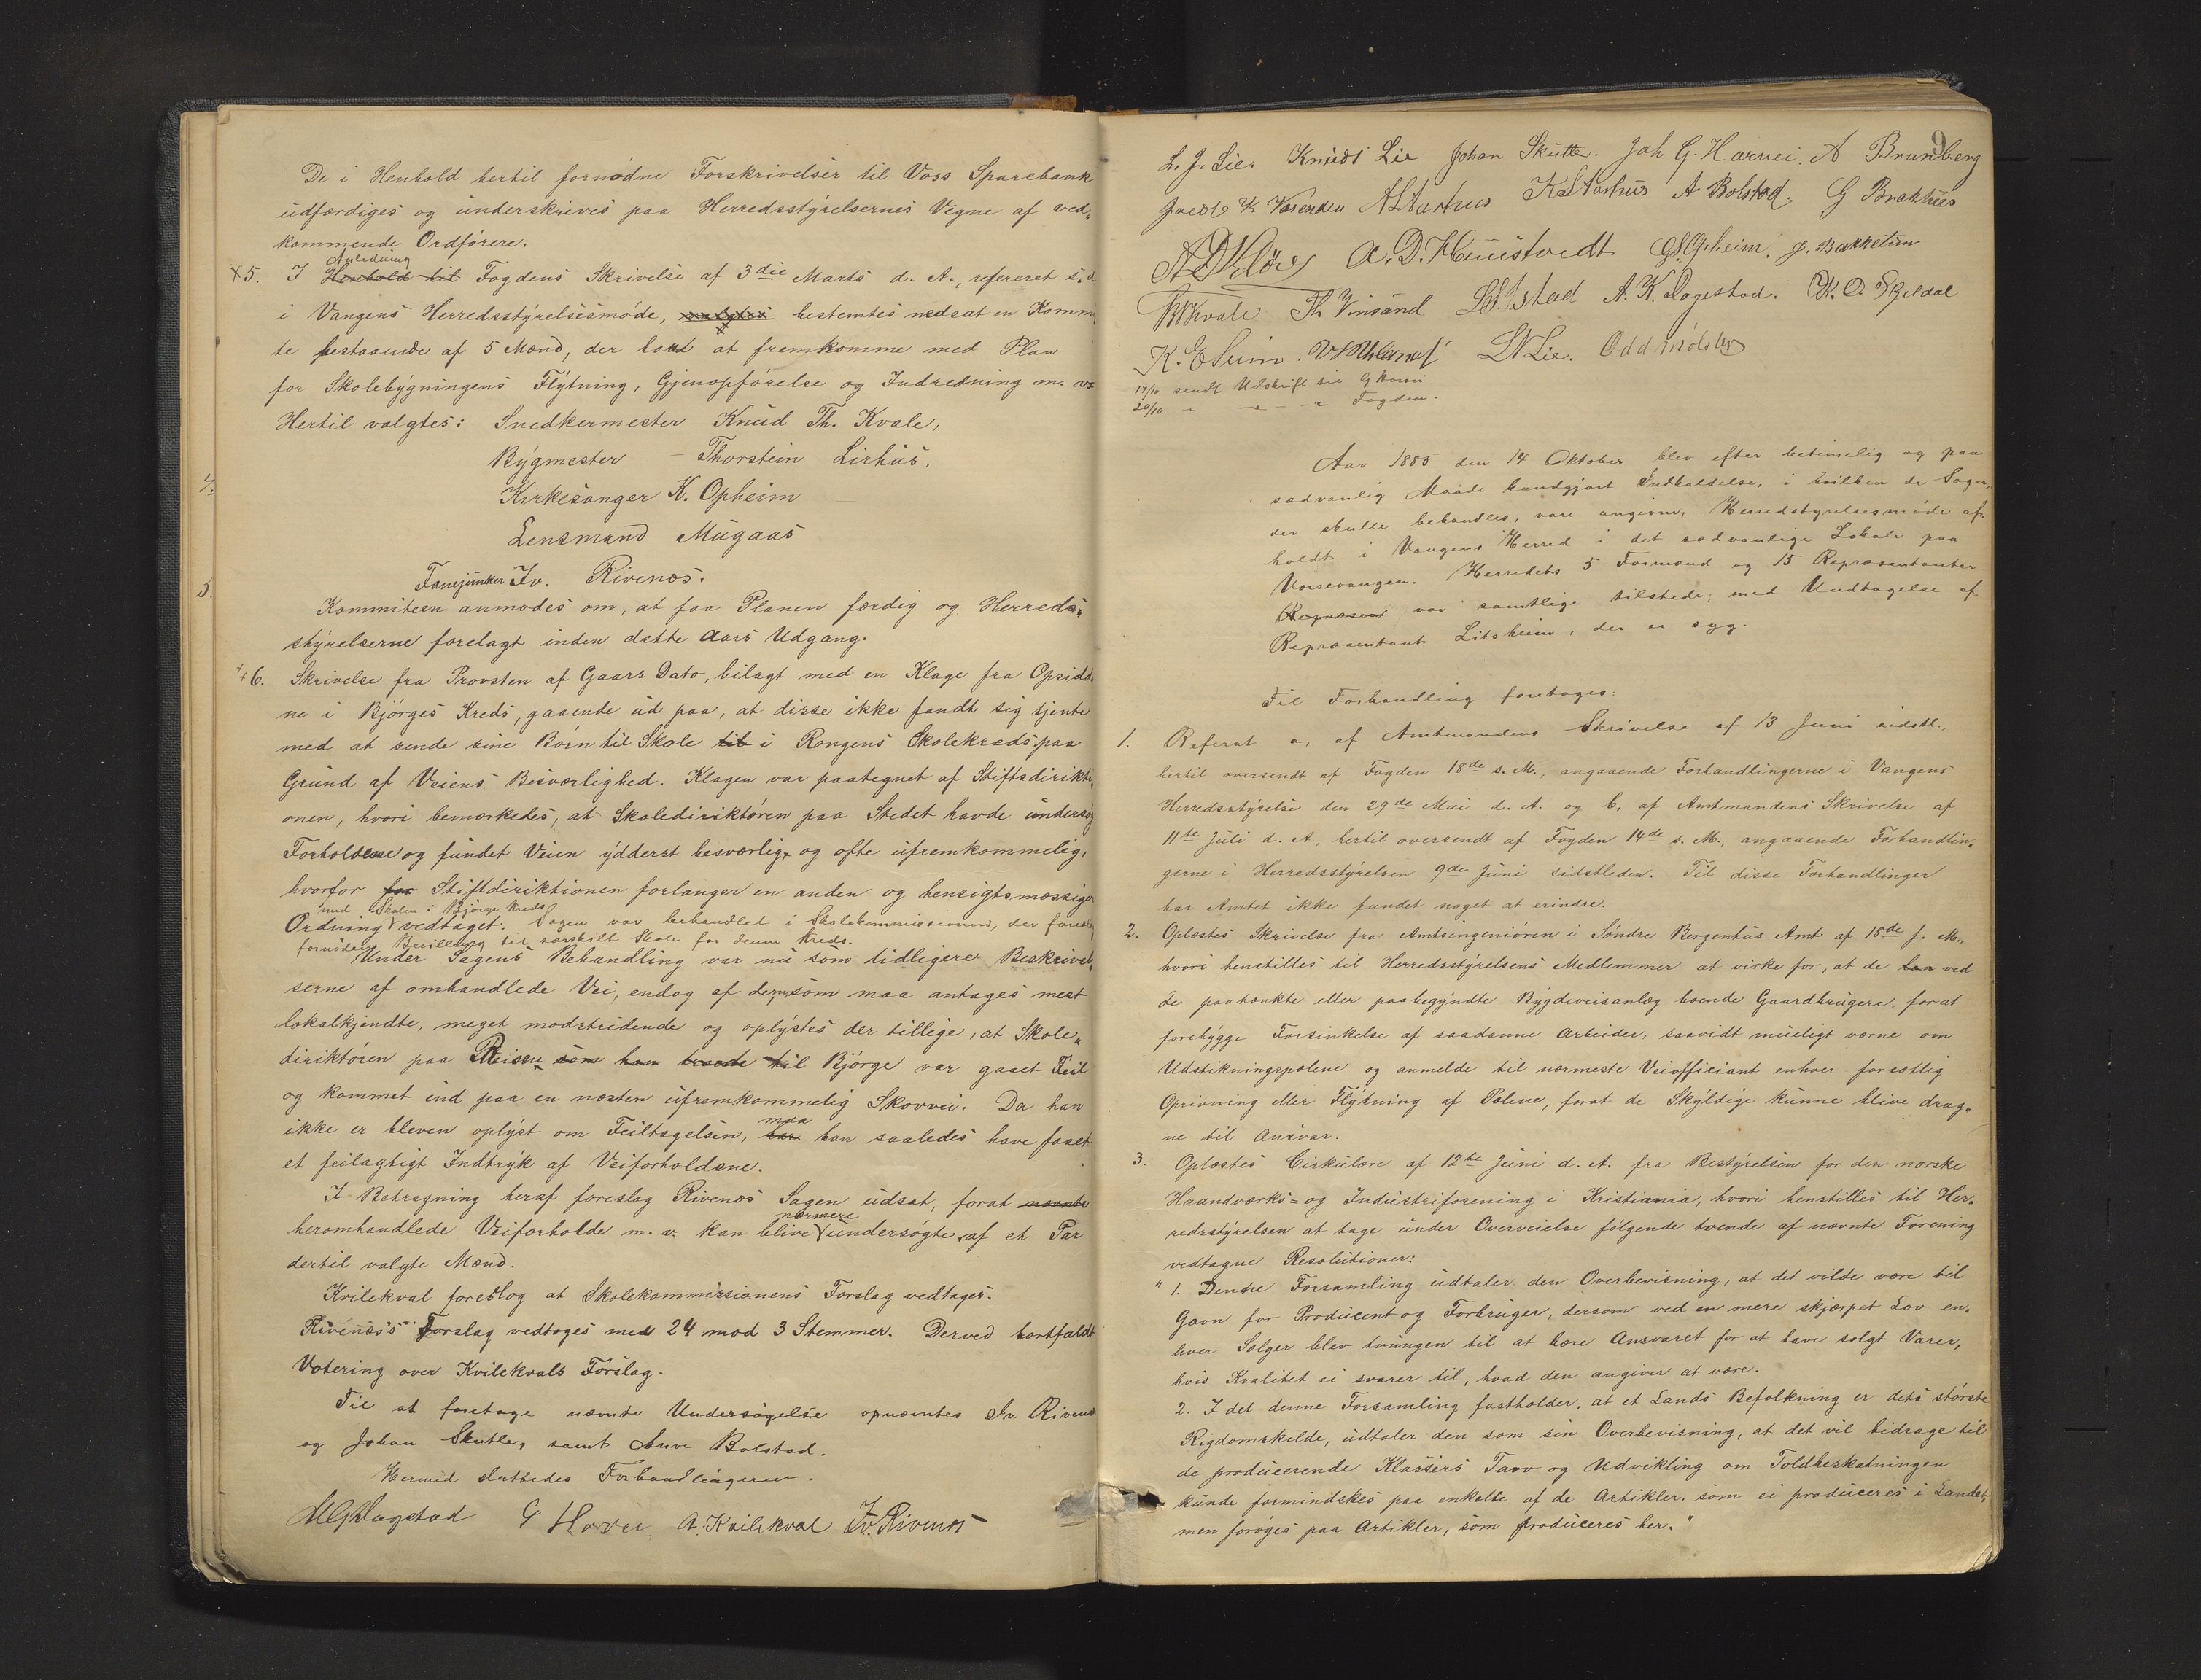 De i Henhold hertil fornødne Forskrivelser til Voss Sparebank
udfærdiges og underskrives paa Herredsstyrelsernes Vegne af ved„
kommende Ordførere.
Anledning
×5. I Henhold til Fogdens Skrivelse af 3die Marts d. A., refereret s. d
i Vangens Herredsstyrelsesmøde, bestemtes nedsat en Komm
te bestaaende af 5 Mænd, der havd at fremkomme med Plan
for Skolebygningens Flytning, Gjenopførelse og Indredning m. v.
Hertil valgtes: Snedkermester Knud Th. Kvale,
Bygmester – Thorstein Lirhus.
4.
Kirkesanger K. Opheim
Lensmand Mugaas
5.
Fanejunker Iv. Rivenæs.
Kommiteen anmodes om, at faa Planen færdig og Herreds„
styrelserne forelagt inden dette Aars Udgang.
×6. Skrivelse fra Provsten af Gaars Dato, bilagt med en Klage fra Opsidde
ne i Bjørges Kreds, gaaende ud paa, at disse ikke fandt sig tjente
med at sende sine Børn til Skole til i Rongens Skolekreds paa
Grund af Veiens Besværlighed. Klagen var paategnet af Stiftsdirikti
onen, hvori bemærkedes, at Skolediriktøren paa Stedet havde undersøg
Forholdene og fundet Veien ydderst besværlig og ofte ufremkommelig,
hvorfor for Stiftdiriktionen forlanger en anden og hensigtsmæssiger
med Skolen i Bjørge Kreds
Ordning vedtaget. Sagen var behandlet i Skolekommissionen, der foreslog
fornøden Bevilling til særskilt Skole for denne Kreds.
Under Sagens Behandling var nu som tidligere Beskrivel„
serne af omhandlede Vei, endog af dem, som maa antages mest
lokalkjendte, meget modstridende og oplystes der tillige, at Skole„
diriktøren paa Reisen som han havde til Bjørge var gaaet Feil
og kommet ind paa en næsten ufremkommelig Skovvei. Da han
maa
ikke er bleven oplyst om Feiltagelsen, har han saaledes have faaet
et feilagtigt Indtryk af Veiforholdene.
I Betragning heraf foreslog Rivenæs Sagen udsat, forat nævnte
nærmere
heromhandlede Veiforholde m. v. kan blive undersøgte af et Par
dertil valgte Mænd.
Kvilekval foreslog at Skolekommissionens Forslag vedtages.
Rivenæs's Forslag vedtoges med 24 mod 3 Stemmer. Derved bortfaldt
Votering over Kvilekvals Forslag.
Til at foretage nævnte Undersøgelse opnævntes Iv. Rivenæs
og Johan Skutle, samt Anve Bolstad.
Hermed sluttedes Forhandlingerne.
Dagestad G Horvei A. Kvilekval Iv. Rivenæs
9
L. J. Lie. Knudt Lie Johan Skutle. Joh. G. Horvei. A Brunborg
A Aarhus K Aarhus A. Bolstad. G Brakhus
A. D. Hunstvedt G. Opheim. J. Bakketun
Kvale Th Vinsand A. K. Dagestad. K. O. Skjeldal
L N Lie. Odd Mølster
17/10 sendt Udskrift til G Horvei
20/10 „ — „ — „ Fogden.
Aar 1885 den 14 Oktober blev efter betimelig og paa
sædvanlig Maade kundgjort Indkaldelse, i hvilken de Sager,
der skulle behandles, vare angivne, Herredstyrelsesmøde af„
holdt i Vangens Herred i det sædvanlige Lokale paa
Vossevangen. Herredets 5 Formænd og 15 Repræsentanter
Repræsen var samtlige tilstede, med Undtagelse af
Repræsentant Litsheim, der er syg.
Til Forhandling foretoges:
1. Referat a, af Amtmandens Skrivelse af 13 Juni sidstl.,
hertil oversendt af Fogden 18de s. M., angaaende Forhandlingerne i Vangens
Herredsstyrelse den 29de Mai d. A. og b, af Amtmandens Skrivelse af
11te Juli d. A, hertil oversendt af Fogden 14de s. M., angaaende Forhandlin„
gerne i Herredsstyrelsen 9de Juni sidstleden. Til disse Forhandlinger
har Amtet ikke fundet noget at erindre.
2. Oplæstes Skrivelse fra Amtsingeniøren i Søndre Bergenhus Amt af 18de f. M.,
hvori henstilles til Herredsstyrelsens Medlemmer at virke for, at de ved
de paatænkte eller paabegyndte Bygdeveisanlæg boende Gaardbrugere, forat
forebygge Forsinkelse af saadanne Arbeider, saavidt mueligt værne om
Udstikningspælene og anmelde til nærmeste Veiofficiant enhver forsætlig
Oprivning eller Flytning af Pælene, forat de Skyldige kunne blive drag„
ne til Ansvar.
3. Oplæstes Cirkulære af 12te Juni d. A. fra Bestyrelsen for den norske
Haandværks= og Industriforening i Kristiania, hvori henstilles til Her„
redsstyrelsen at tage under Overveielse følgende tvende af nævnte Forening
vedtagne Resolutioner:
„ 1. Denne Forsamling udtaler den Overbevisning, at det vilde være til
Gavn for Producent og Forbruger, dersom ved en mere skjærpet Lov en„
hver Sælger blev tvungen til at bære Ansvaret for at have solgt Varer,
hvis Kvalitet ei svarer til, hvad den angiver at være.
2. I det denne Forsamling fastholder, at et Lands Befolkning er dets største
Rigdomskilde, udtaler den som sin Overbevisning, at det vil bidrage til
de producerende Klassers Tarv og Udvikling om Toldbeskatningen
kunde formindskes paa enkelte af de Artikler, som ei produceres i Landet,
men forøges paa Artikler, som produceres her."